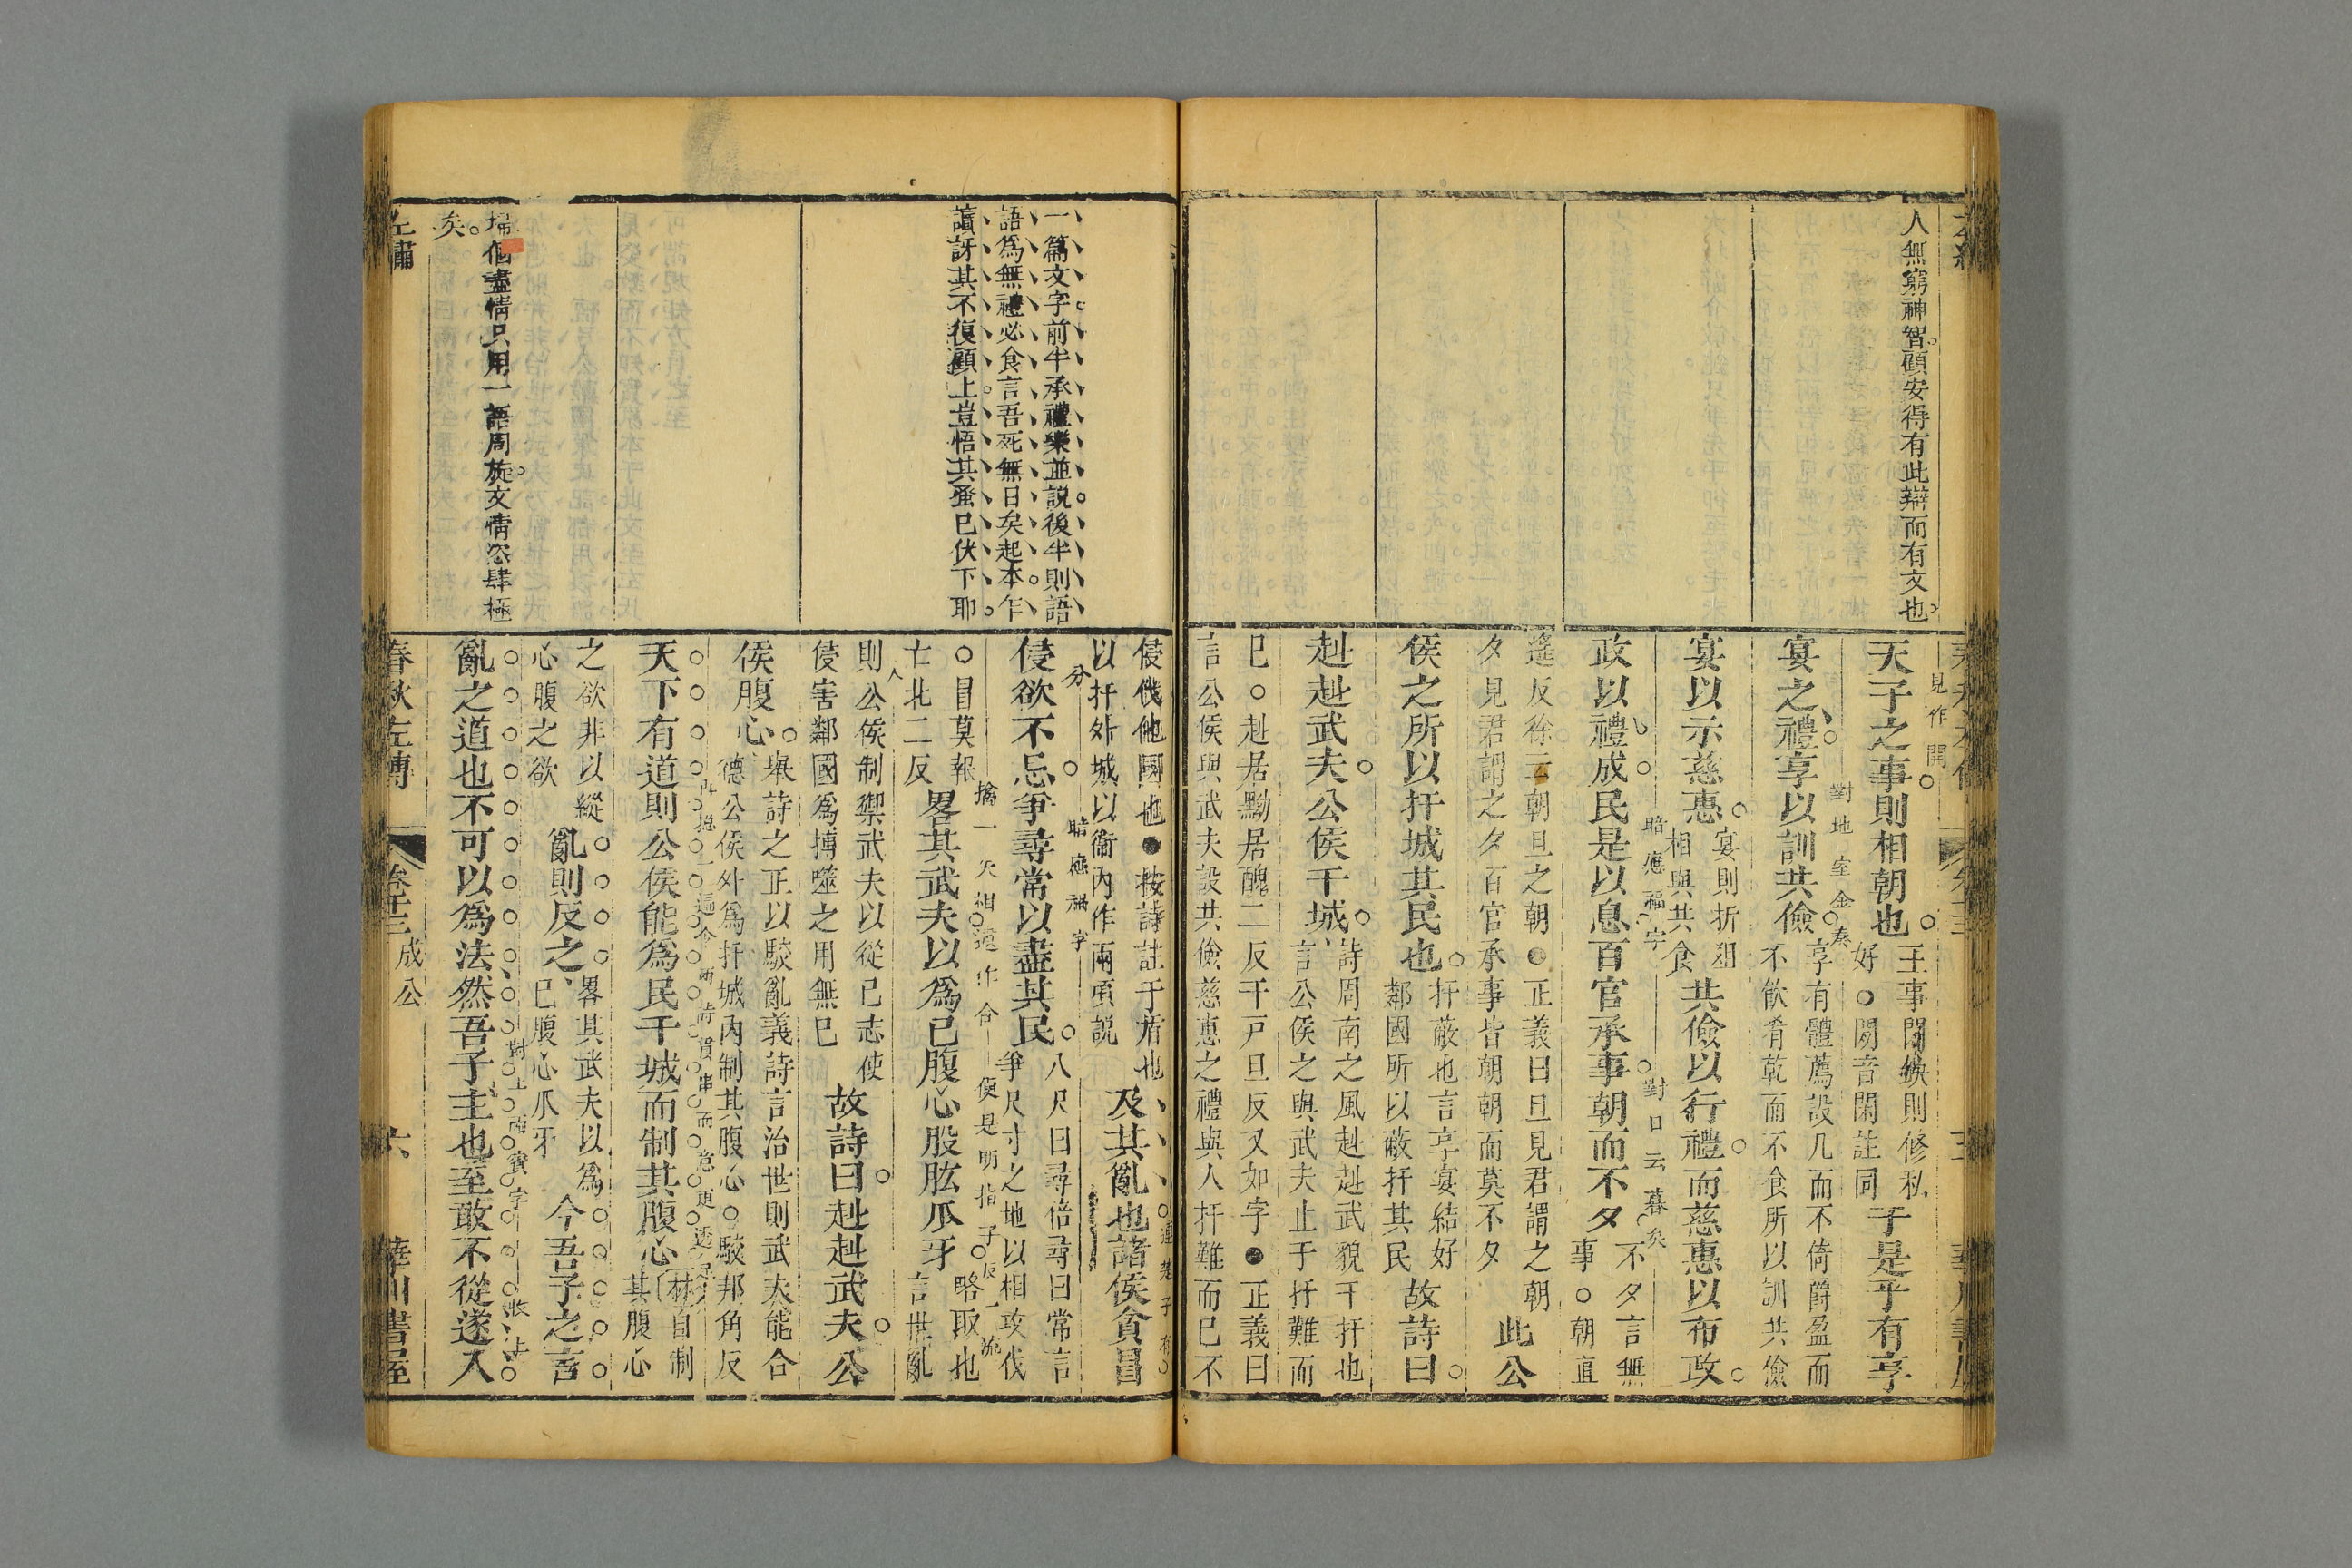 人無窮神智顧安得有此辯而有文也
見作開
天子之事則相朝也
王事閒缺則修私
好○閒音閑註同
于是乎有享
宴之禮享以訓共儉
對地室金奏
享有體薦設几而不倚爵盈而
不飲肴乾而不食所以訓共儉
宴以示慈惠
宴則折俎
相與共食
共儉以行禮而慈惠以布政
政以禮成民是以息百官承事朝而不夕
暗應福字
對日云暮矣
不夕言無
事○朝直
遙反徐云朝旦之朝●正義曰旦見君謂之朝
夕見君謂之夕百官承事皆朝朝而莫不夕
此公
侯之所以扞城其民也
扞蔽也言享宴結好
鄰國所以蔽扞其民
故詩曰
赳赳武夫公侯干城
詩周南之風赳赳武貌干扞也
言公侯之與武夫止于扞難而
已○赳居黝居醜二反干戸旦反又如字●正義曰
言公侯與武夫設共儉慈惠之禮與人扞難而已不
一篇文字前半承禮樂並説後半則語
語爲無禮必食言吾死無日矣起本乍
讀訝其不復顧上豈悟其蚤已伏下耶
侵伐他國也●按詩註干盾也
以扞外城以衞内作兩項説
及其亂也諸侯貪冒
侵欲不忌爭尋常以盡其民
暗應禍字
八尺曰尋倍尋曰常言
爭尺寸之地以相攻伐
○冒莫報
亡北二反
畧其武夫以爲己腹心股肱爪牙
便是明指子反一流
略取也
言世亂
則公侯制禦武夫以從己志使
侵害鄰國爲搏噬之用無已
故詩曰赳赳武夫公
侯腹心
舉詩之正以駮亂義詩言治世則武夫能合
德公侯外爲扞城内制其腹心○駮邦角反
天下有道則公侯能爲民干城而制其腹心
林自制
其腹心
之欲非以縱
心腹之欲
亂則反之
畧其武夫以爲
己腹心爪牙
今吾子之言
亂之道也不可以爲法然吾子主也至敢不從遂入
對上兩賓字
收上
埽他盡情只用一語周旋文情恣肆極
矣
左繡
春秋左傳
成公
六
華川書屋